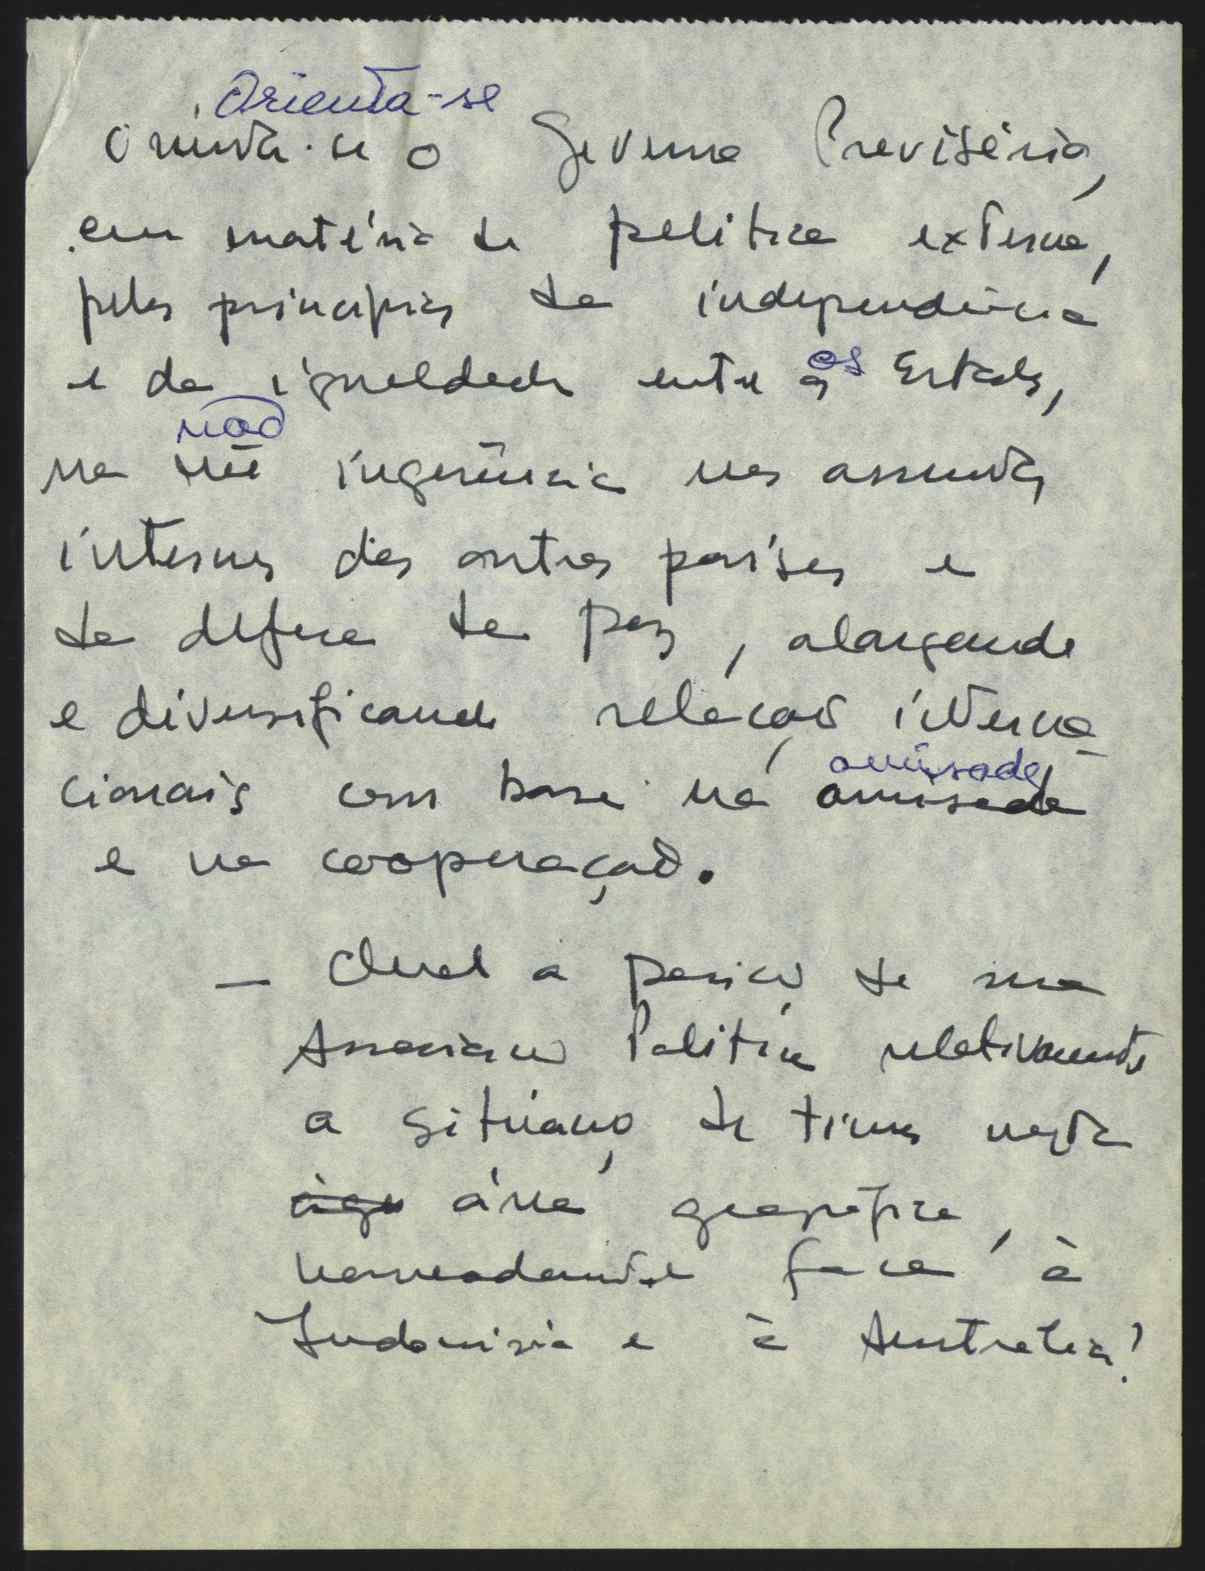 Orienta-se
Orienta-se o Governo Provisório,
em matéria de política externa,
pelos princípios da independência
e da igualdade entre os os Estados,
não
na não ingerência nos assuntos
internos dos outros países e
da defesa da paz, alargando
e diversificando relações interna-
amisade
cionais com base na amisade
e na cooperação.
— Qual a posição da sua
Associação Política relativamente
a situação de Timor nesta
área geográfica,
nomeadamente face à
Indonésia e à Austrália?